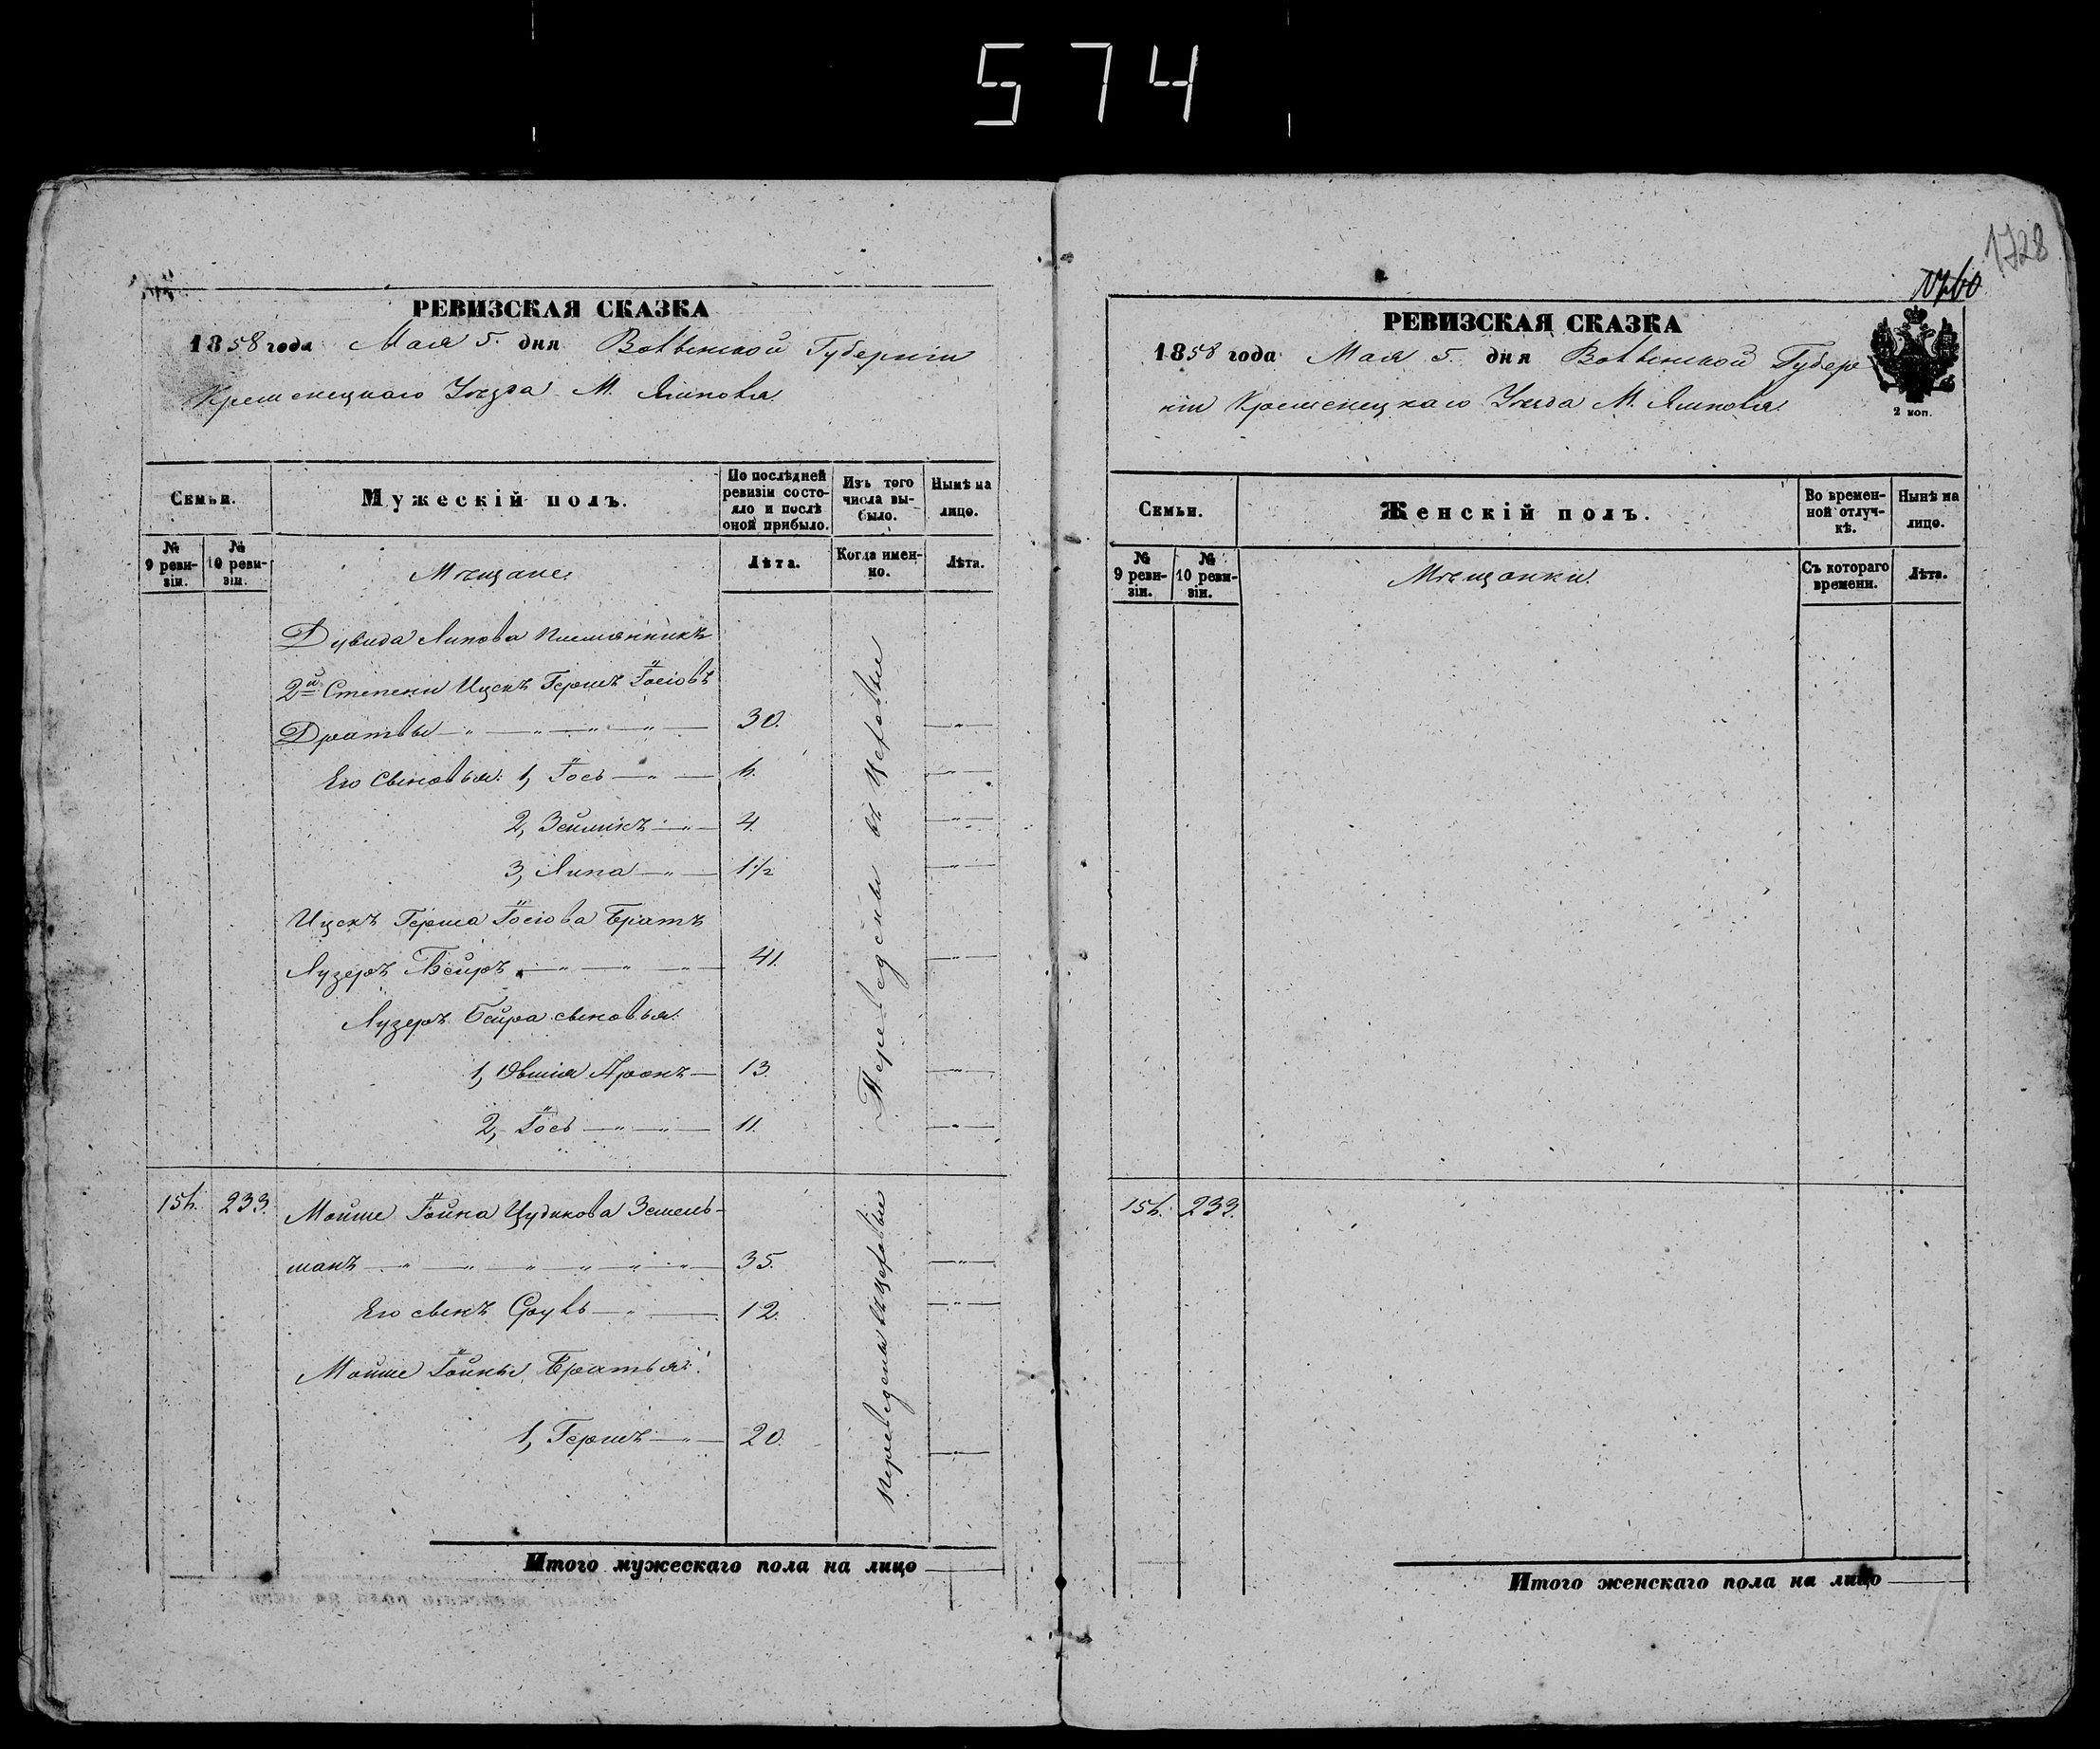 574
1728
1760
РЕВИЗСКАЯ СКАЗКА
1858 года Мая 5. дня Волынской Губерніи
Кременецкаго Уѣзда М. Ямпола.
Семьи.
Мужескій полъ.
По послѣдней ревизіи состояло и послѣ оной прибыло.
Изъ того числа выбыло.
Нынѣ на лицо.
№ 9 ревизіи.
№ 10 ревизіи.
Мѣщане:
Лѣта.
Когда именно.
Лѣта.
Дувида Липова племянникъ
2й Степени Ицекъ Гершъ Іосіовъ
Дратвы 30.
Его Сыновья: 1, Іось 6.
2, Зейликъ 4.
3, Липа 1½
Ицекъ Герша Іосіова Братъ
Лузеръ Бейръ 41.
Лузеръ Бейра сыновья:
1, Овшія Аронъ 13.
2, Іось 11.
Переведены въ Цеховые
156. 233. Мойше Іойна Цудикова Зешель-
манъ 35.
Его сынъ Сруль 12.
Мойше Іойны Братья:
1, Гершъ 20.
переведены въ цеховые
Итого мужескаго пола на лицо
РЕВИЗСКАЯ СКАЗКА
1858 года Мая 5. дня Волынской Губер
ніи Кременецкаго Уѣзда М. Ямпола.
2 коп.
Семьи.
Женскій полъ.
Во временной отлучкѣ.
Нынѣ на лицо.
№ 9 ревизіи.
№ 10 ревизіи.
Мѣщанки.
Съ котораго времени.
Лѣта.
156. 233.
Итого женскаго пола на лицо